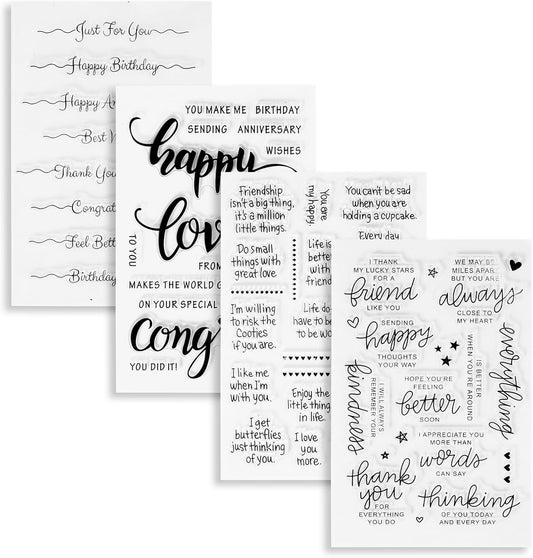 Just For You
Happy Birthday
Happy
Best
Thank You
Congrat
Feel Bette
Birthday
YOU MAKE ME BIRTHDAY
SENDING ANNIVERSARY
WISHES
happy
love
TO YOU
FROM
MAKES THE WORLD
ON YOUR SPECIAL
Cong
YOU DID IT!
Friendship
isn't a big thing,
it's a million
little things.
You are
my happy.
You can't be sad
when you are
holding a cupcake.
Every day
Do small
things with
great love
Life is
better
with
friend
I'm willing
to risk the
Cooties
if you are.
Life do
have to
to be
wo
I like me
when I'm
with you.
Enjoy the
little thing
in life.
I get
butterflies
just thinking
of you.
I love
you
more.
I THANK
MY LUCKY STARS
FOR A
friend
LIKE YOU
WE MAY BE
MILES APART
BUT YOU ARE
always
CLOSE TO
MY HEART
SENDING
happy
THOUGHTS
YOUR WAY
everything
IS BETTER
WHEN YOU'RE AROUND
kindness
I WILL ALWAYS
REMEMBER YOUR
HOPE YOU'RE
FEELING
better
SOON
I APPRECIATE YOU
MORE THAN
words
CAN SAY
thank
you
FOR
EVERYTHING
YOU DO
thinking
OF YOU TODAY
AND EVERY DAY